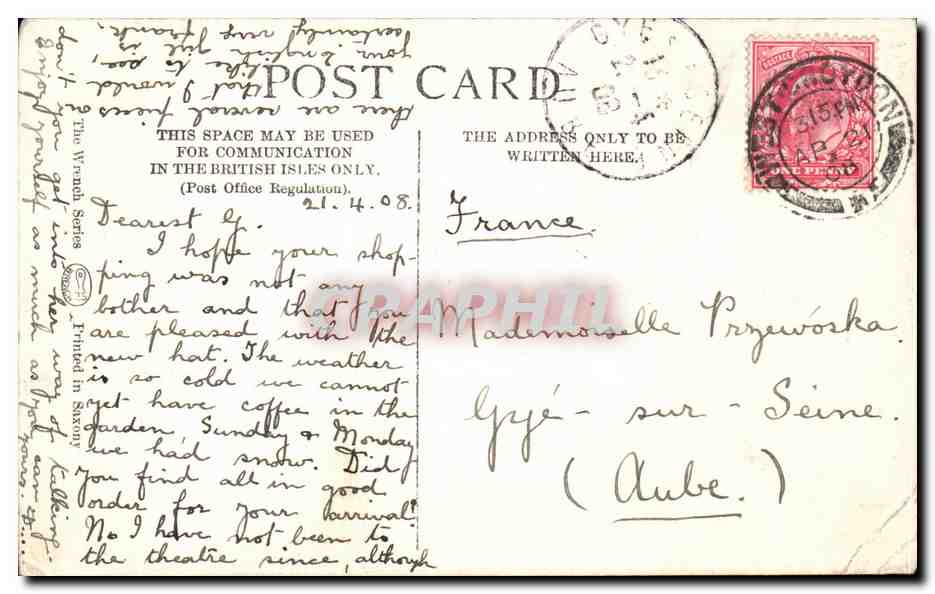 POST CARD
THIS SPACE MAY BE USED
FOR COMMUNICATION
IN THE BRITISH ISLES ONLY.
(Post Office Regulation).
THE ADDRESS ONLY TO BE
WRITTEN HERE.
21.4.08.
Dearest G.
I hope your shop-
ping was not any
bother and that you
are pleased with the
new hat. The weather
is so cold we cannot
yet have coffee in the
garden, Sunday & Monday
we had snow. Did
you find all in good
order for your arrival?
No I have not been to
the theatre since, although
there are several pieces on
that I would
like to see,
your English girl is
certainly very frank,
don't you get into her way of talking.
Enjoy yourself as much as you can
yours.
France.
Mademoiselle Przewóska
Gyé-sur-Seine.
(Aube.)
The Wrench Series
Printed in Saxony
POSTAGE
ONE PENNY
WEST CROYDON
3 15 PM
AP 21
08
GYE
CRAPHIL